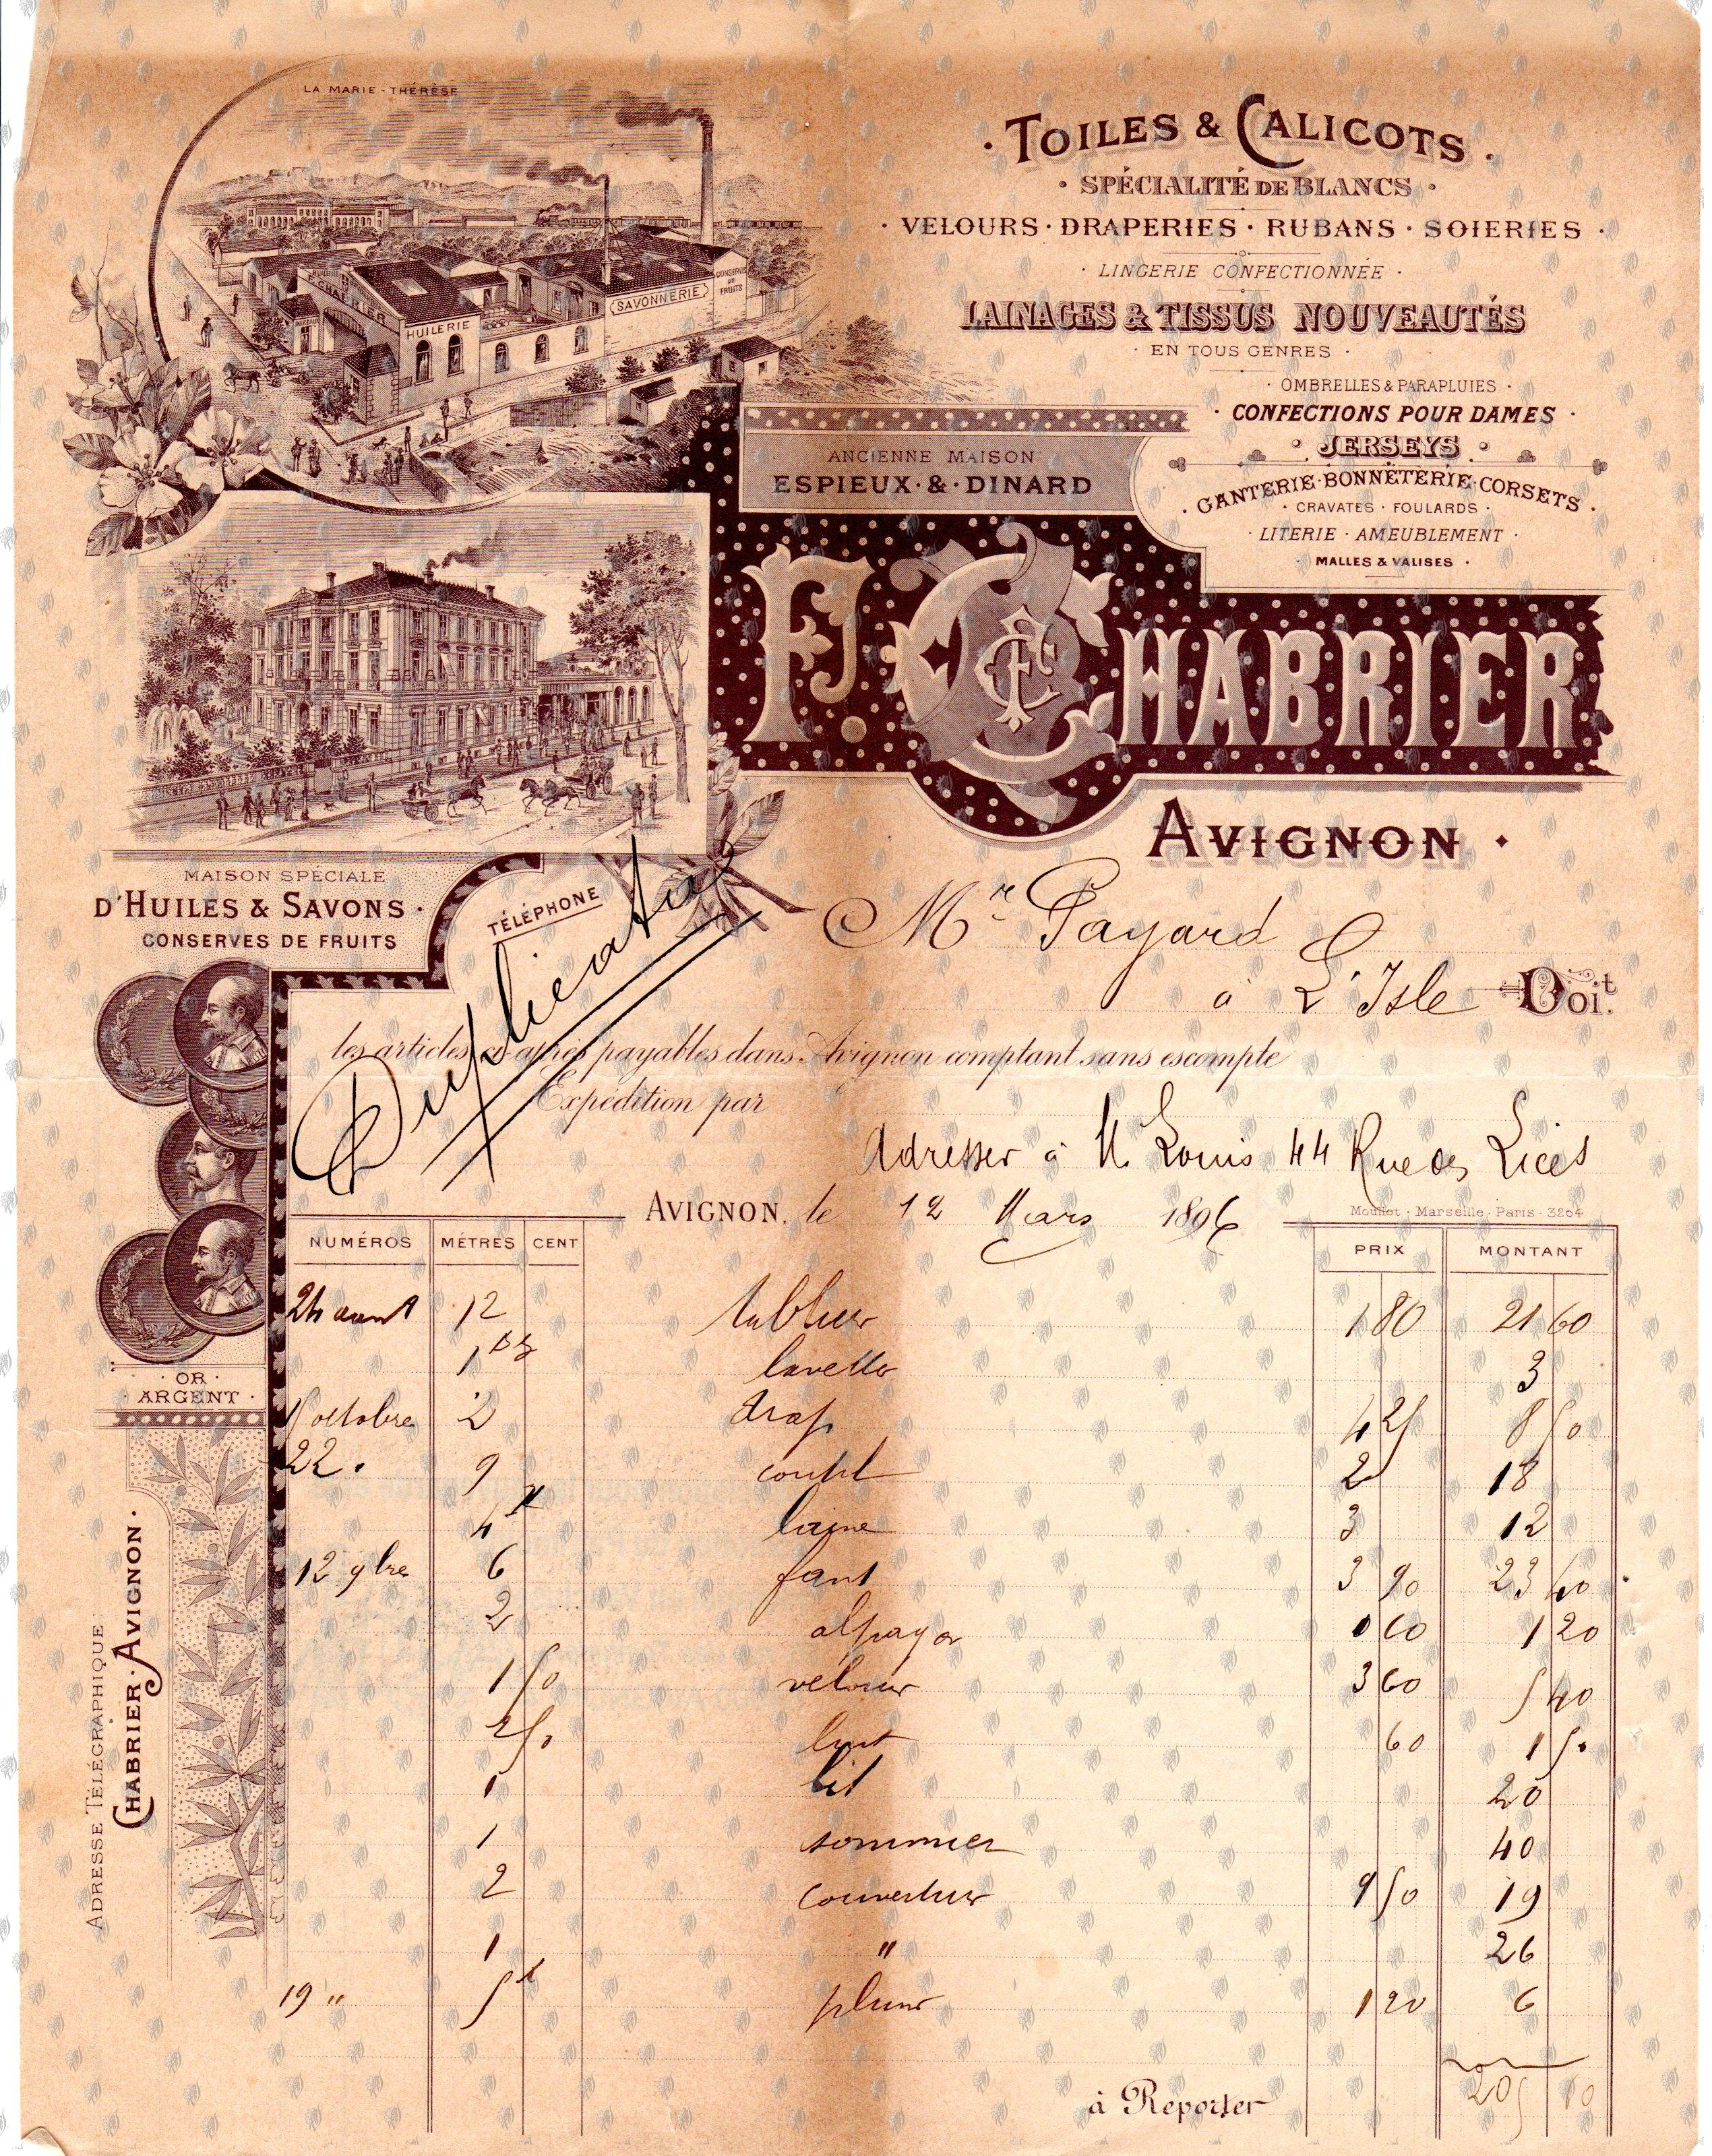 LA MARIE-THÉRÈSE
F. CHABRIER
HUILERIE
SAVONNERIE
CONSERVES
DE
FRUITS
· TOILES & CALICOTS ·
· SPÉCIALITÉ DE BLANCS ·
· VELOURS · DRAPERIES · RUBANS · SOIERIES ·
· LINGERIE CONFECTIONNÉE ·
LAINAGES & TISSUS NOUVEAUTÉS
· EN TOUS GENRES ·
· OMBRELLES & PARAPLUIES ·
· CONFECTIONS POUR DAMES ·
· JERSEYS ·
· GANTERIE · BONNETERIE · CORSETS ·
· CRAVATES · FOULARDS ·
· LITERIE · AMEUBLEMENT ·
· MALLES & VALISES ·
ANCIENNE MAISON
ESPIEUX · & · DINARD
F. CHABRIER
AVIGNON ·
MAISON SPÉCIALE
D'HUILES & SAVONS ·
CONSERVES DE FRUITS
TÉLÉPHONE
Duplicata
Mr Payard
à L'Isle Doit.
les articles ci-après payables dans Avignon comptant sans escompte
Expédition par
Adresser à M. Louis 44 Rue des Lices
AVIGNON, le 12 Mars 1896
Moullot · Marseille · Paris · 3204
NUMÉROS MÈTRES CENT PRIX MONTANT
24 aout 12 tablier 1 80 21 60
1 Dz lavette 3
15 octobre 2 drap 4 25 8 50
22 " 9 coutil 2 18
4 laine 3 12
12 9bre 6 fant 3 90 23 40
2 alpaga 0 60 1 20
1 50 velour 3 60 5 40
2 50 60 1 50
1 lit 20
1 sommier 40
2 couvertur 9 50 19
1 " 26
19 " 5 plume 1 20 6
à Reporter 205 60
· OR ·
· ARGENT ·
ADRESSE TÉLÉGRAPHIQUE:
CHABRIER · AVIGNON ·